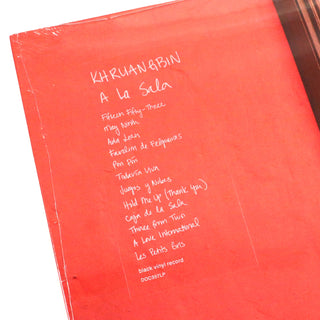 KHRUANGBIN
A La Sala
Fifteen Fifty-Three
May Ninth
Ada Jean
Farolim de Felgueiras
Pon Pón
Todavía Viva
Juegos y Nubes
Hold Me Up (Thank You)
Caja de la Sala
Three From Two
A Love International
Les Petits Gris
black vinyl record
DOC357LP